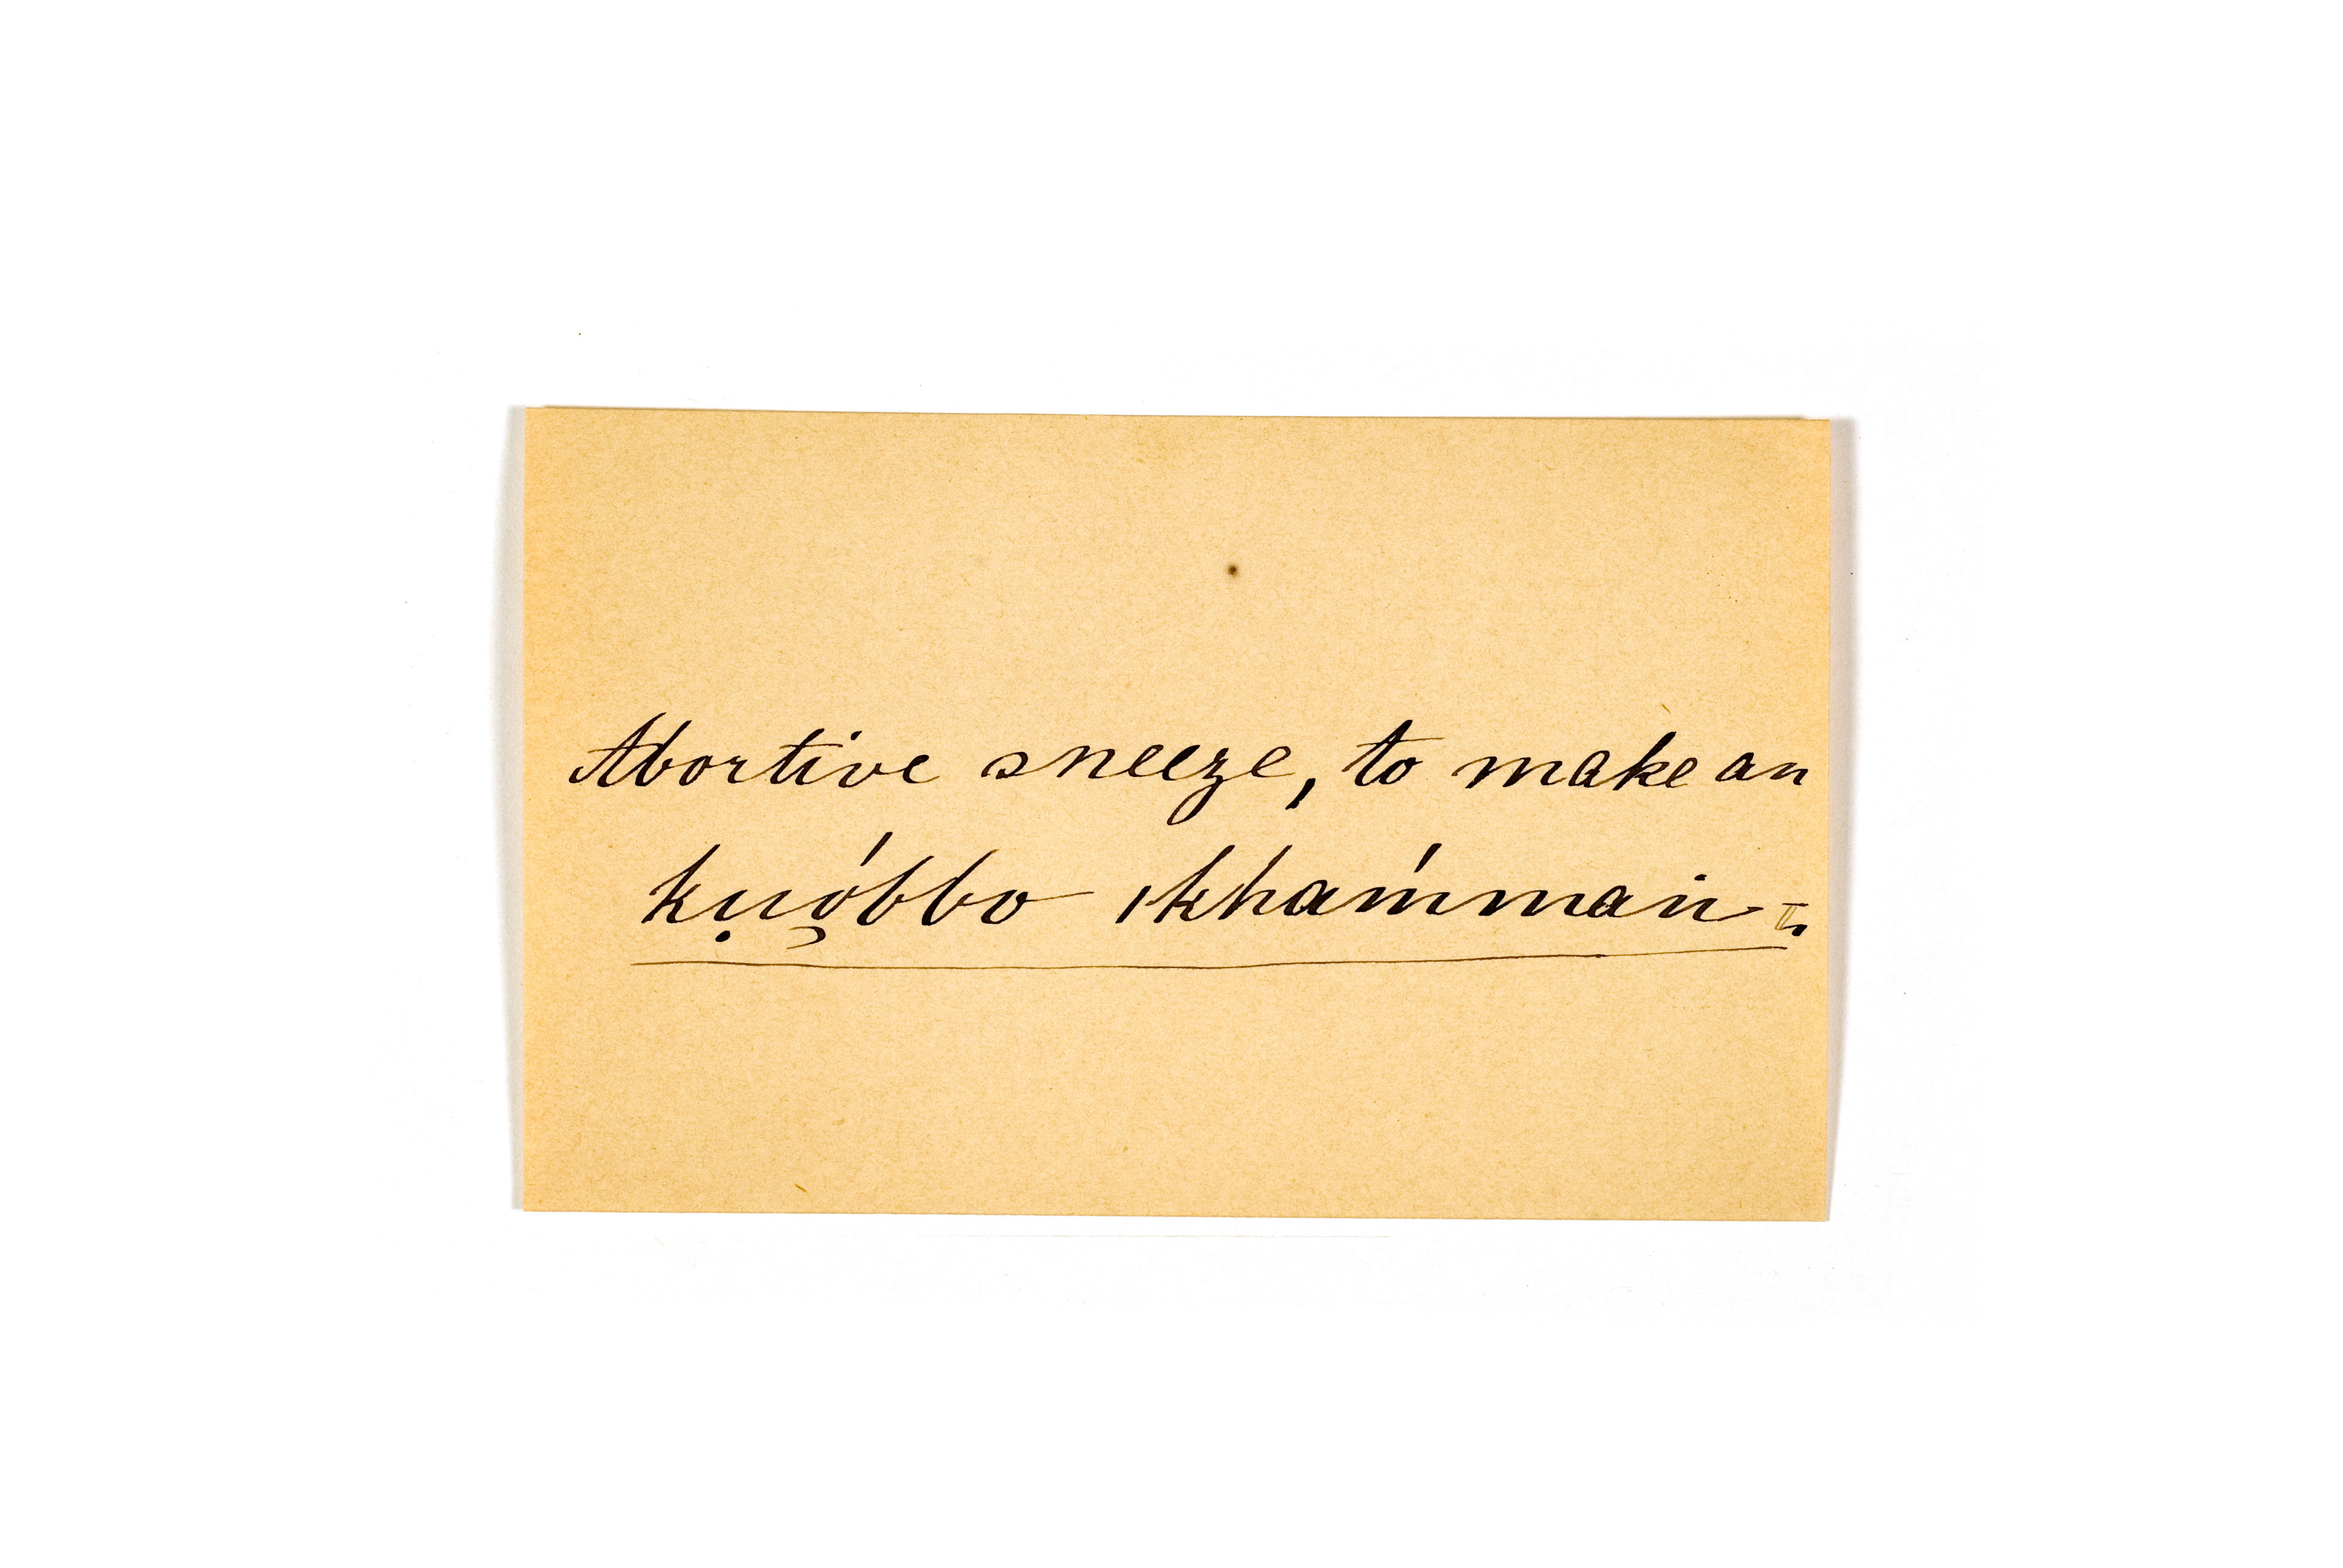 Abortive sneeze, to make an
kụó̡bbo ıkhamḿan-ï.